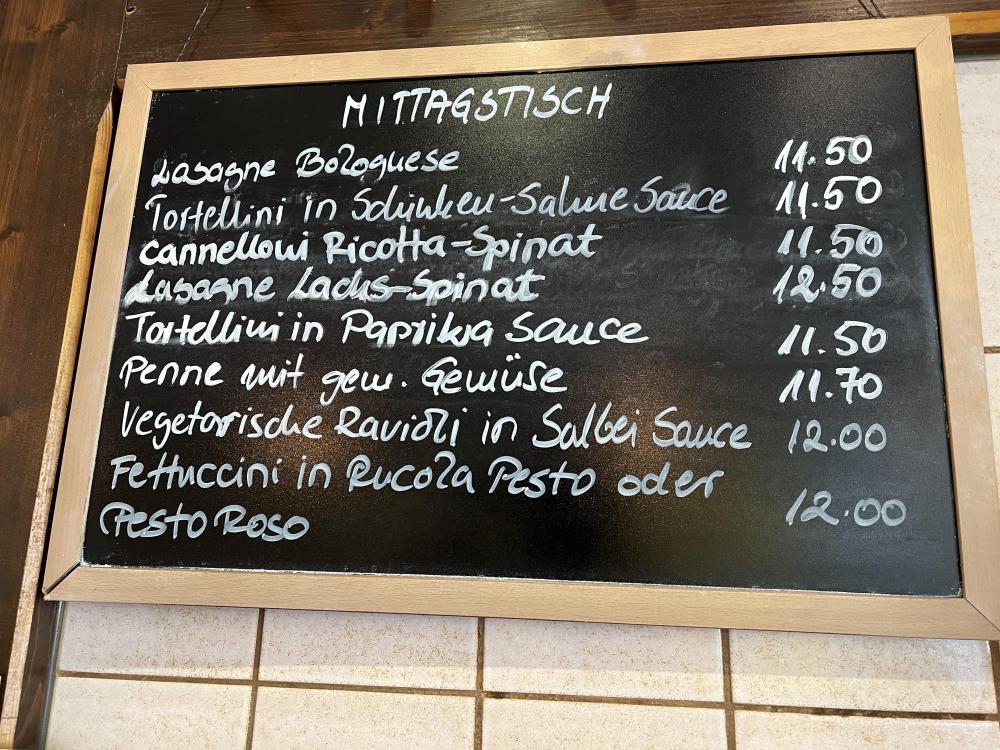 MITTAGSTISCH
Lasagne Bolognese 11.50
Tortellini in Schinken-Sahne Sauce 11.50
Cannelloni Ricotta-Spinat 11.50
Lasagne Lachs-Spinat 12.50
Tortellini in Paprika Sauce 11.50
Penne mit gem. Gemüse 11.70
Vegetarische Ravioli in Salbei Sauce 12.00
Fettuccini in Rucola Pesto oder
Pesto Roso 12.00